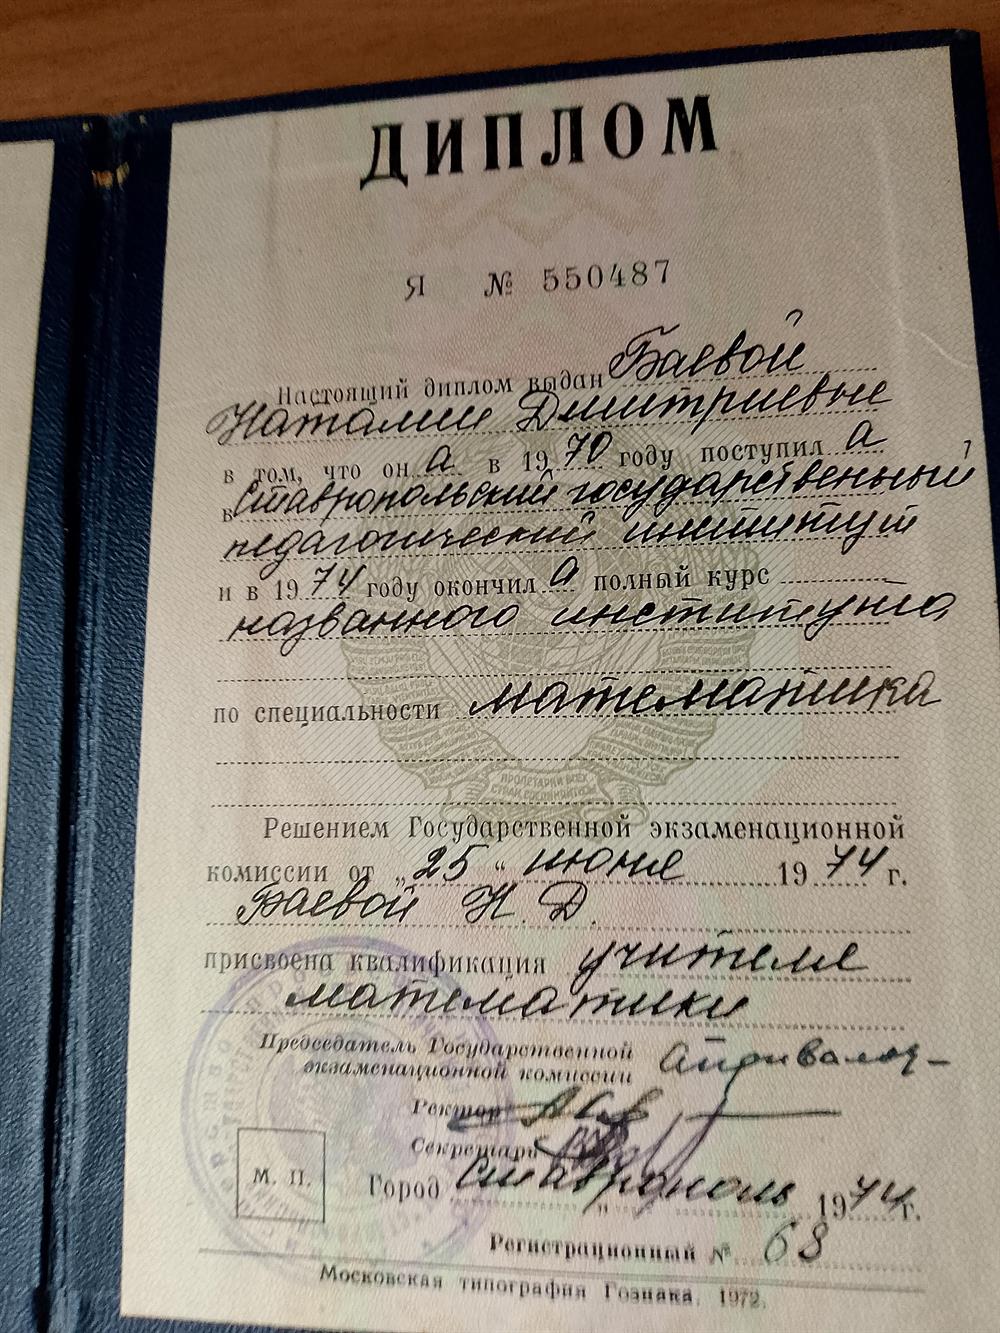 ДИПЛОМ
Я № 550487
Настоящий диплом выдан Баевой
Наталии Дмитриевне
в том, что он а в 1970 году поступил а
в Ставропольский государственный
педагогический институт
и в 1974 году окончил а полный курс
названного института
по специальности математика
Решением Государственной экзаменационной
комиссии от „25“ июня 1974 г.
Баевой Н. Д.
присвоена квалификация учителя
математики
Председатель Государственной
экзаменационной комиссии
Ректор
Секретарь
М. П.
Город Ставрополь 1974 г.
Регистрационный № 68
Московская типография Гознака. 1972.
ПРОЛЕТАРИИ ВСЕХ
СТРАН, СОЕДИНЯЙТЕСЬ!